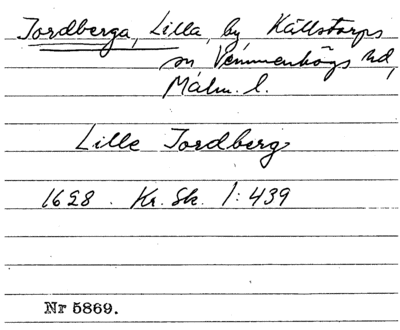 Jordberga, Lilla, by Källstorps
sn Vemmenhögs hd,
Malm. l.
Lille Jordberg
1628. Kr. Sk. 1:439
Nr 5869.